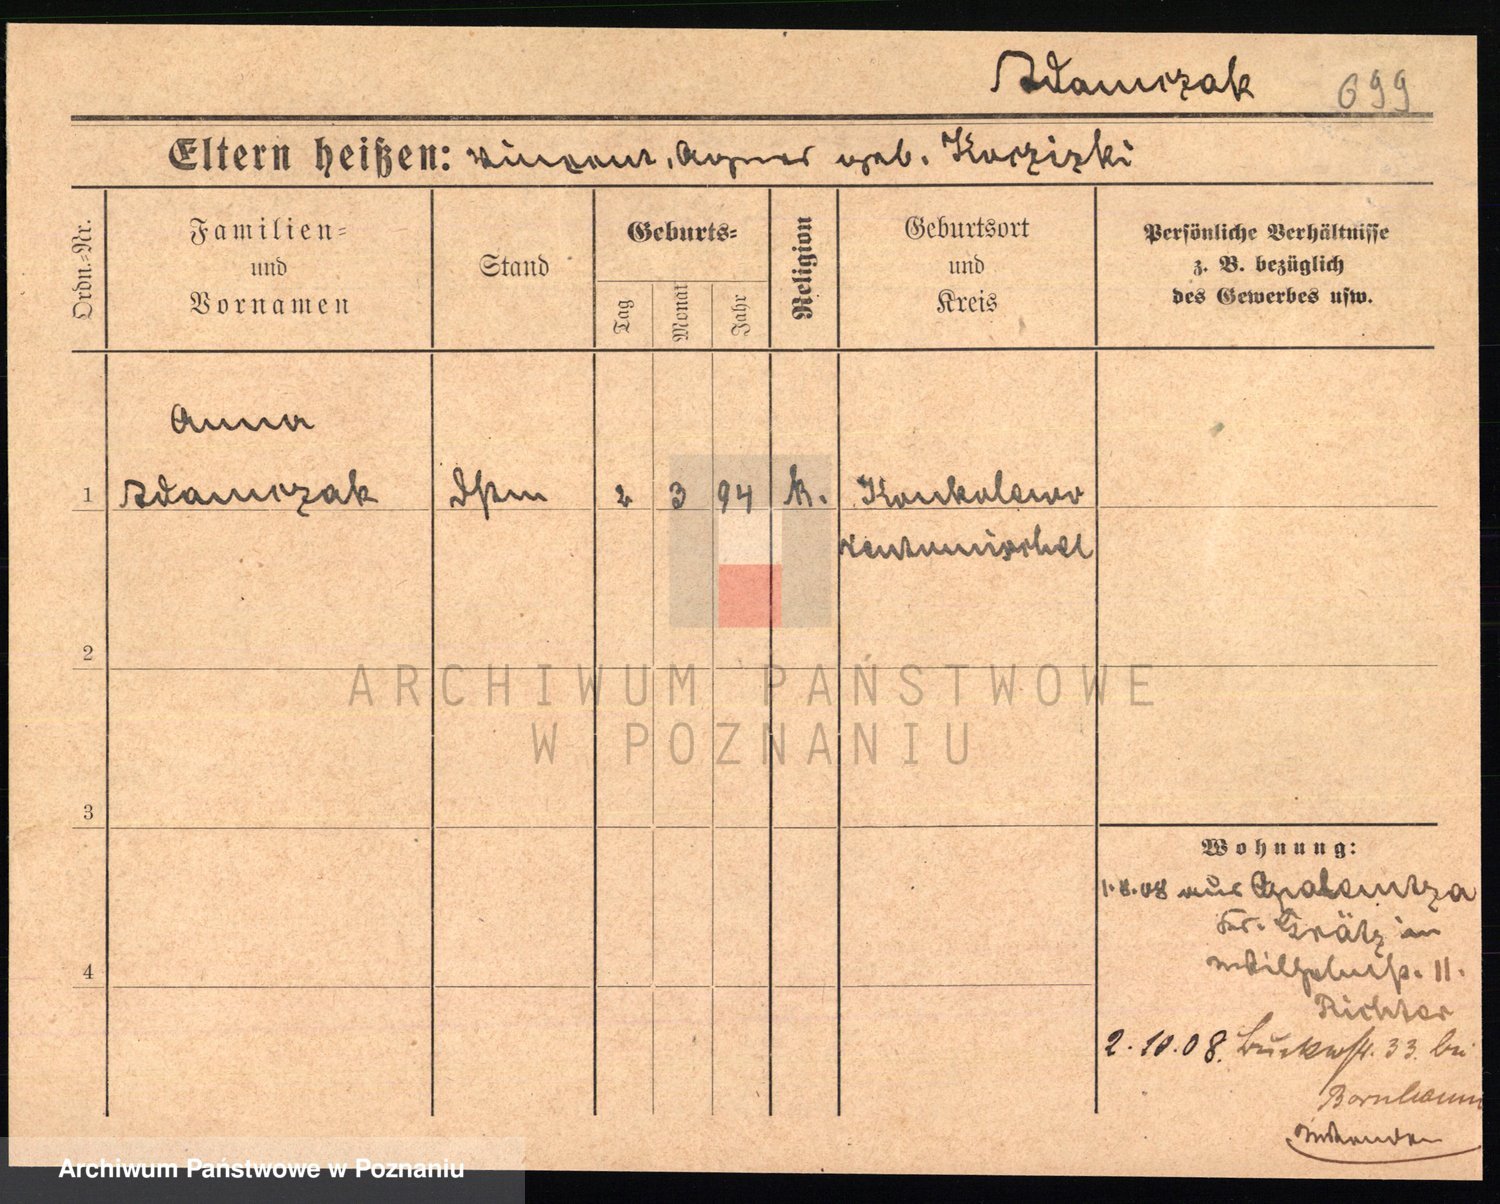 Adamczak 699
Eltern heißen: Vincent, Agnes geb. Koczizki
Ordn.-Nr.
Familien-
und
Vornamen
Stand
Geburts-
Tag
Monat
Jahr
Religion
Geburtsort
und
Kreis
Persönliche Verhältnisse
z. B. bezüglich
des Gewerbes usw.
Anna
1 Adamczak Dstm 2 3 94 k. Konkolewo
Neutomischel
2
ARCHIWUM PAŃSTWOWE
W POZNANIU
3
Wohnung:
1.8.08 aus Opalenitza
Kr. Grätz in
Wilhelmst. 11.
4
Richter
2.10.08. 33. bei
Bornbaum
Archiwum Państwowe w Poznaniu